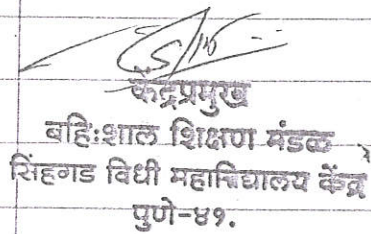 केंद्रप्रमुख
बहिःशाल शिक्षण मंडळ
सिंहगड विधी महाविद्यालय केंद्र
पुणे-४१.